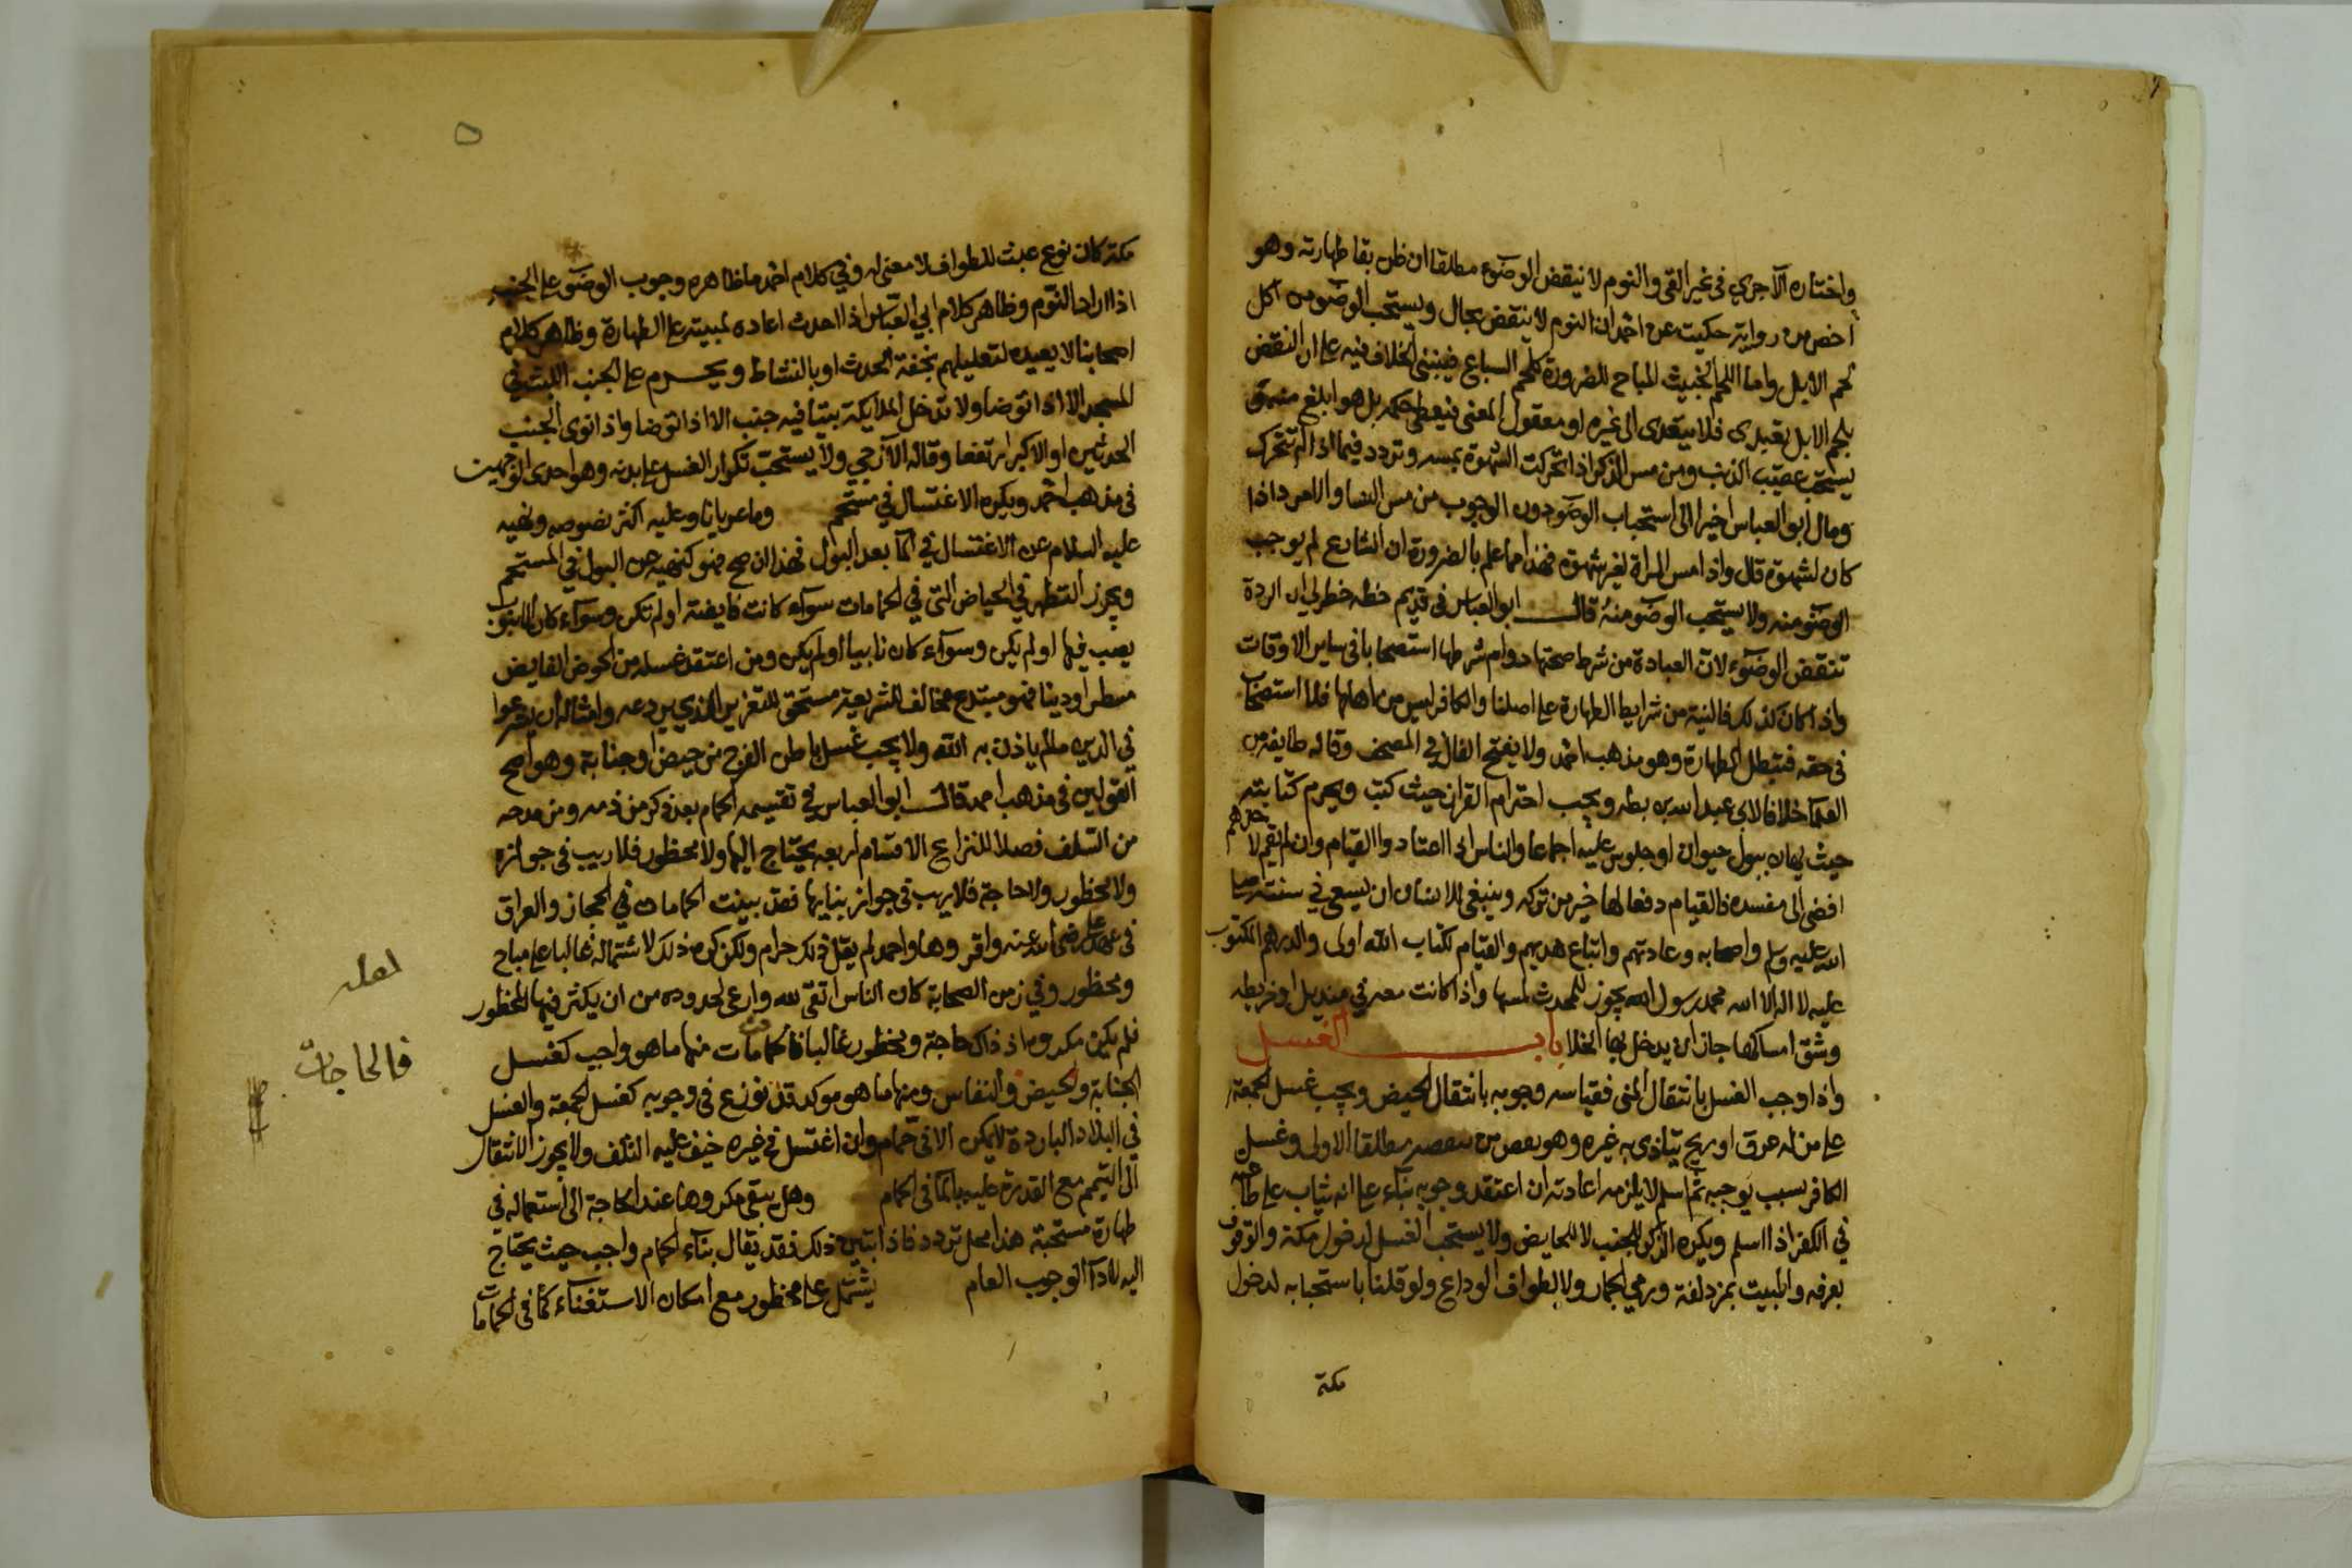 واختاره الآجري في غير القي والنوم لا ينقض الوضوء مطلقا ان ظن بقا طهارته وهو
اخص من رواية حكيت عن احمد ان النوم لا ينقض بحال ويستحب الوضو من اكل
لحم الابل واما اللحم الخبيث المباح للضرورة كلحم السباع فينبني الخلاف فيه على ان النقض
بلحم الابل تعبدي فلا يتعدى الى غيره او معقول المعنى فيعطى حكمه بل هو ابلغ منه
يستحب عقيب الذنب ومن مس الذكر اذا تحركت الشهوة بمسه وتردد فيما اذا لم تتحرك
ومال ابو العباس اخيرا الى استحباب الوضو دون الوجوب من مس النسا والامرد اذا
كان لشهوة قال واذا مس المراة لغير شهوة فهذا مما علم بالضرورة ان الشارع لم يوجب
الوضو منه ولا يستحب الوضو منه قال ابو العباس في قديم خطه خطر لي ان الردة
تنقض الوضوء لان العبادة من شرط صحتها دوام شرطها استصحابا في ساير الاوقات
واذا كان كذلك فالنية من شرايط الطهارة على اصلنا والكافر ليس من اهلها فلا استصحاب
في حقه فتبطل الطهارة وهو مذهب احمد ولا يفتح الفال في المصحف وقاله طايفة من
العلما خلافا لابي عبد الله بن بطه ويجب احترام القران حيث كتب ويحرم كتابته
حيث يهان ببول حيوان او جلوس عليه اجماعا والناس اذا اعتادوا القيام وان لم يقم لاحدهم
افضى الى مفسدة فالقيام دفعا لها خير من تركه وينبغي للانسان ان يسعى في سنته صلى
الله عليه وسلم واصحابه وعادتهم واتباع هديهم والقيام لكتاب الله اولى والدرهم المكتوب
عليه لا اله الا الله محمد رسول الله يجوز للمحدث لمسها واذا كانت معه في منديل او خريطه
وشق امساكها جاز ان يدخل بها الخلا باب الغسل
واذا وجب الغسل بانتقال المني فقياسه وجوبه بانتقال الحيض ويجب غسل الجمعة
على من له عرق او ريح يتاذى به غيره وهو بعض من مطلقا الاولى وغسل
الكافر بسبب يوجبه ثم اسلم لا يلزمه اعادته ان اعتقد وجوبه بناء على انه يثاب على طاعته
في الكفر اذا اسلم ويكره الذكر للجنب لا للحايض ولا يستحب الغسل لدخول مكة والوقوف
بعرفه والمبيت بمزدلفة ورمي الجمار ولا لطواف الوداع ولو قلنا باستحبابه لدخول
مكة
مكة كان نوع عبث للطواف لا معنى له وفي كلام احمد ما ظاهره وجوب الوضوء على الجنب
اذا اراد النوم وظاهر كلام ابي العباس اذا احدث اعاده لمبيته على الطهارة وظاهر كلام
اصحابنا لا يعيده لتعليلهم بخفة الحدث او بالنشاط ويحرم على الجنب اللبث في
المسجد الا اذا توضا ولا تدخل الملايكة بيتا فيه جنب الا اذا توضا واذا نوى الجنب
الحدثين او الاكبر ارتفعا وقاله الازجي ولا يستحب تكرار الغسل على بدنه وهو احدى الوجهين
في مذهب احمد ويكره الاغتسال في مستحم وما عريانا وعليه اكثر نصوصه ونهيه
عليه السلام عن الاغتسال في الما بعد البول فهذا ان صح فهو كنهيه عن البول في المستحم
ويجوز التطهر في الحياض التي في الحمامات سوآء كانت فايضة او لم تكن وسوآء كان الانبوب
يصب فيها او لم يكن وسوآء كان نابيا او لم يكن ومن اعتقد غسله من الحوض الفايض
مسطرا ودينا فهو مبتدع مخالف للشريعة مستحق للتعزير الذي يردعه وامثاله ان يشرعوا
في الدين ما لم ياذن به الله ولا يجب غسل باطن الفرج من حيض وجنابة وهو اصح
القولين في مذهب احمد قال ابو العباس في تقسيمه الحمام بعد ذكر من ذمه ومن مدحه
من السلف فصلا للنزاع الاقسام اربعه يحتاج اليها ولا محظور فلا ريب في جوازه
ولا محظور ولا حاجة فلا ريب في جواز بنايها فقد بينت الحمامات في الحجاز والعراق
في عهد علي رضي الله عنه واقروها واحمد لم يقل ذلك حرام ولكن كره ذلك لاشتماله غالبا على مباح
ومحظور وفي زمن الصحابة كان الناس اتقى لله وارعى لحدوده من ان يكثر فيها المحظور
فلم يكن مكروها اذ ذاك حاجة ومحظور غالبا فالحمامات منها ما هو واجب كغسل
الجنابة والحيض والنفاس ومنها ما هو موكد قد نوزع في وجوبه كغسل الجمعة والغسل
في البلاد الباردة لا يمكن الا في حمام وان اغتسل في غيره خيف عليه التلف ولا يجوز الانتقال
الى التيمم مع القدرة عليه بالما في الحمام وهل يبقى مكروها عند الحاجة الى استعماله في
طهارة مستحبة هذا محل تردد فاذا تبين ذلك فقد يقال بناء الحمام واجب حيث يحتاج
اليه لادآ الوجوب العام يشتمل على محظور مع امكان الاستغناء كما في الحمامات
لعله
فالحاجات